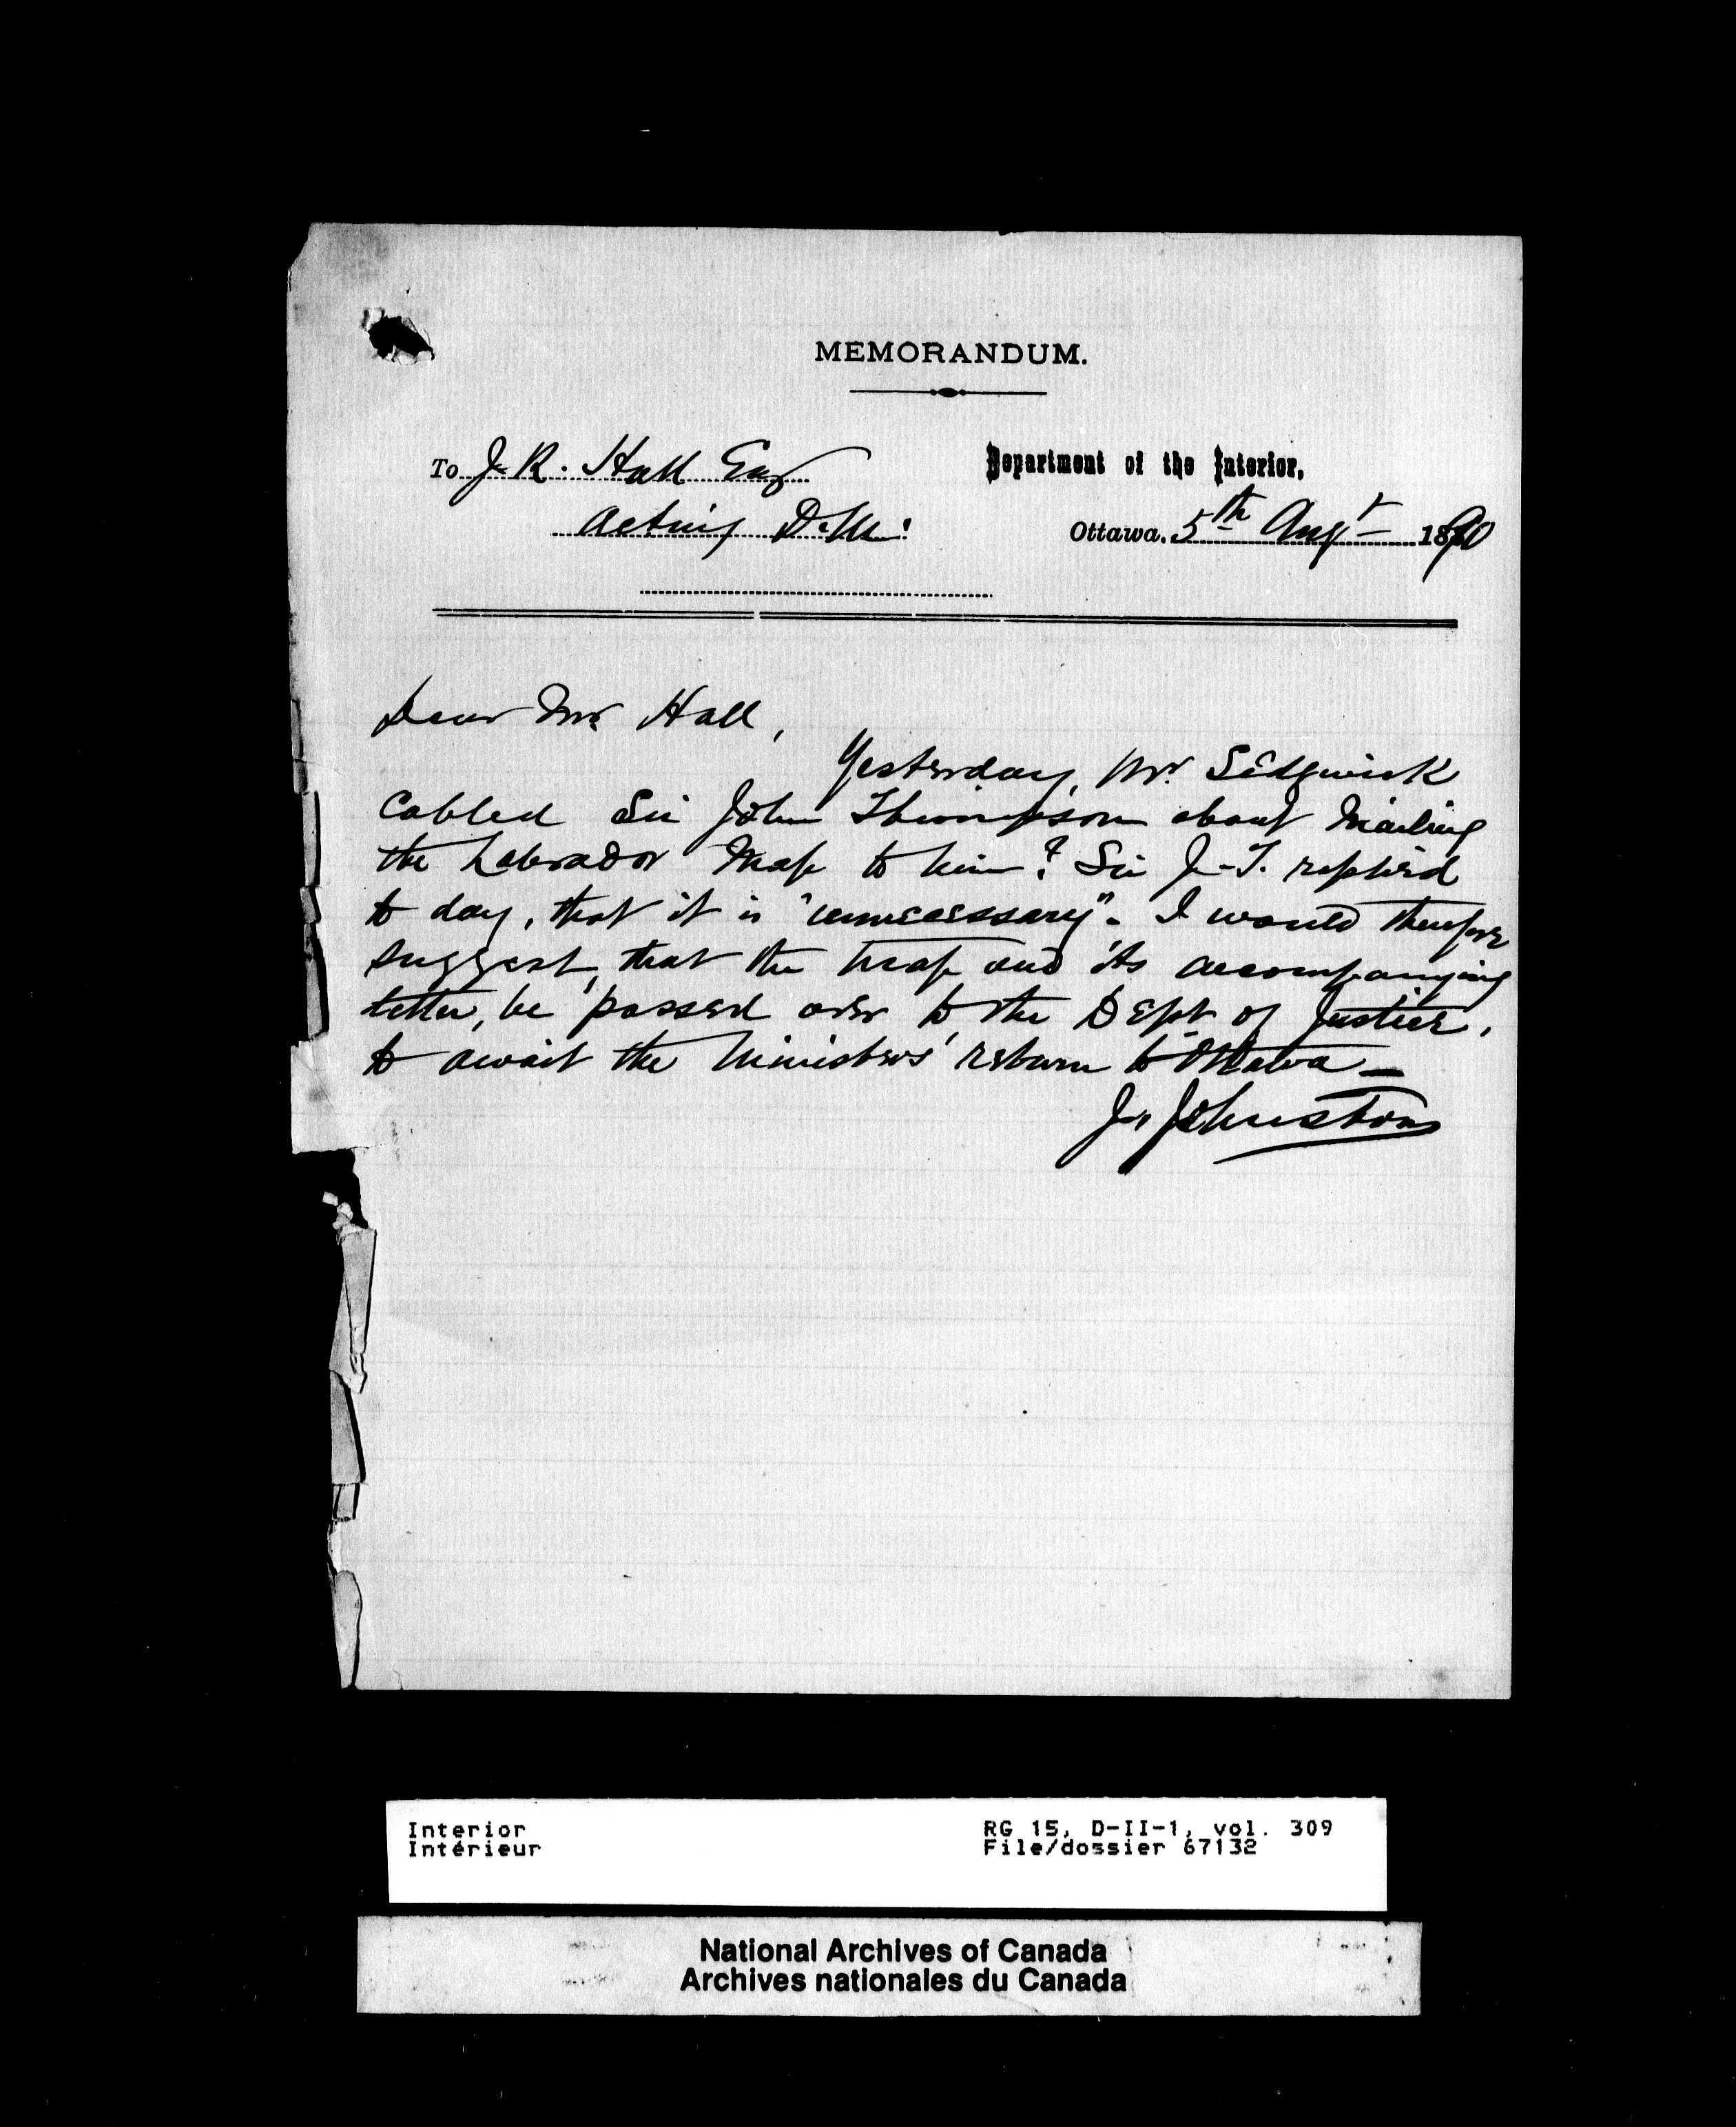 MEMORANDUM.
To J. R. Hall Esq
Department of the Interior,
Acting D. M.
Ottawa, 5th Augt 1890
Dear Mr. Hall,
Yesterday, Mr. Sedgwick
cabled Sir John Thompson about mailing
the Labrador Map to him? Sir J. T. replied
to day, that it is "unnecessary". I would therefore
suggest, that the map and its accompanying
letter, be passed over to the Dept of Justice,
to await the Ministers' return to Ottawa —
J. Johnston
Interior
Intérieur
RG 15, D-II-1, vol. 309
File/dossier 67132
National Archives of Canada
Archives nationales du Canada